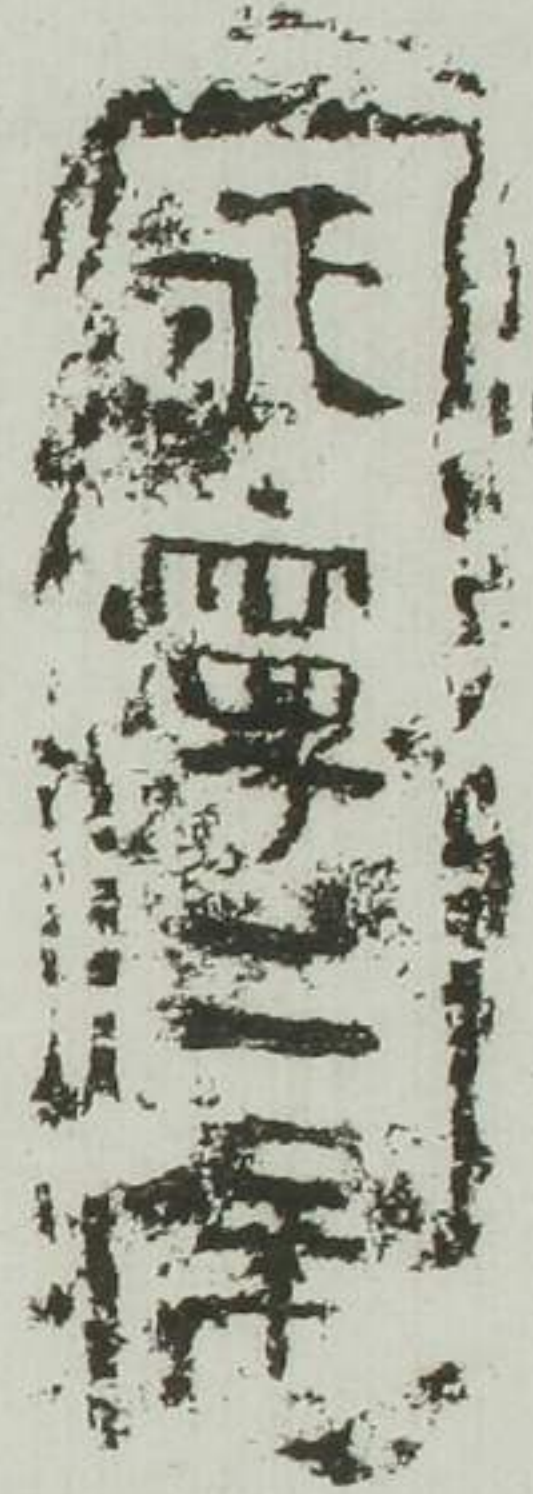 永寧二年